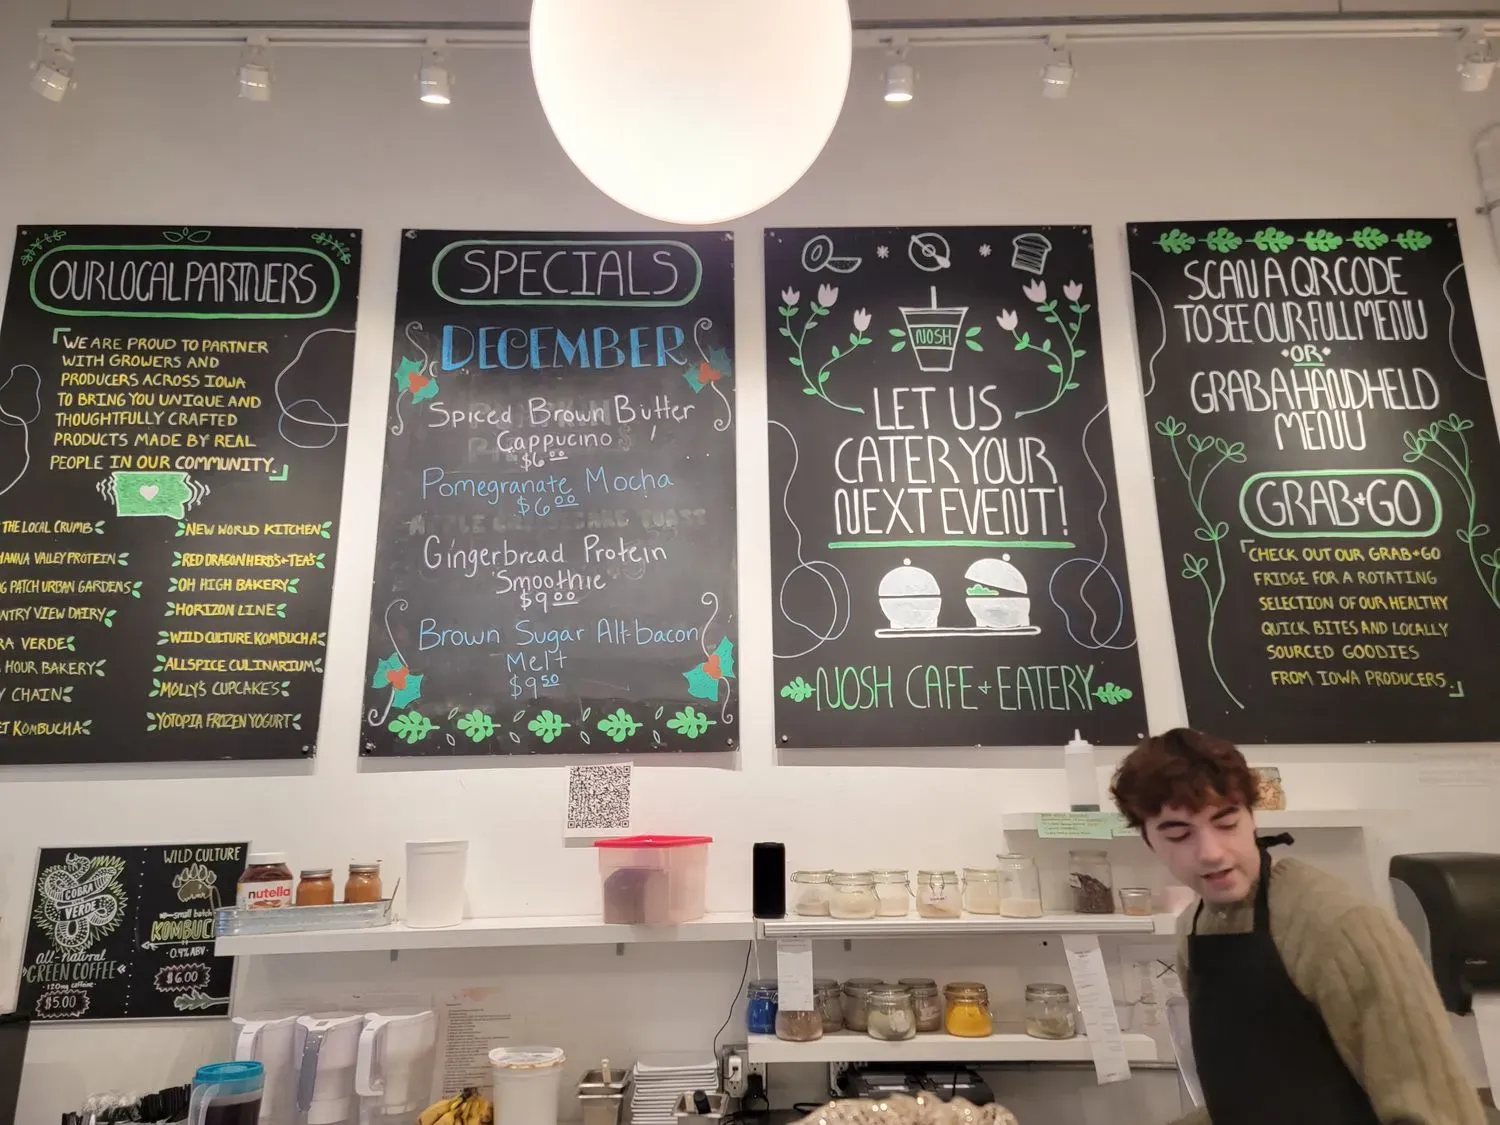 OUR LOCAL PARTNERS
WE ARE PROUD TO PARTNER
WITH GROWERS AND
PRODUCERS ACROSS IOWA
TO BRING YOU UNIQUE AND
THOUGHTFULLY CRAFTED
PRODUCTS MADE BY REAL
PEOPLE IN OUR COMMUNITY.
THE LOCAL CRUMB
VALLEY PROTEIN
PATCH URBAN GARDENS
VIEW DAIRY
VERDE
HOUR BAKERY
CHAIN
KOMBUCHA
NEW WORLD KITCHEN
RED DRAGON HERBS+TEAS
OH HIGH BAKERY
HORIZON LINE
WILD CULTURE KOMBUCHA
ALLSPICE CULINARIUM
MOLLY'S CUPCAKES
YOTOPIA FROZEN YOGURT
SPECIALS
DECEMBER
Spiced Brown Butter
Cappucino
$6.00
Pomegranate Mocha
$6.00
Gingerbread Protein
Smoothie
$9.00
Brown Sugar Alt-bacon
Melt
$9.50
NOSH
LET US
CATER YOUR
NEXT EVENT!
NOSH CAFE + EATERY
SCAN A QR CODE
TO SEE OUR FULL MENU
•OR•
GRAB A HANDHELD
MENU
GRAB+GO
CHECK OUT OUR GRAB+GO
FRIDGE FOR A ROTATING
SELECTION OF OUR HEALTHY
QUICK BITES AND LOCALLY
SOURCED GOODIES
FROM IOWA PRODUCERS.
COBRA
VERDE
all-natural
GREEN COFFEE
120mg caffeine
$5.00
WILD CULTURE
small batch
KOMBUC
0.4% ABV
$6.00
nutella